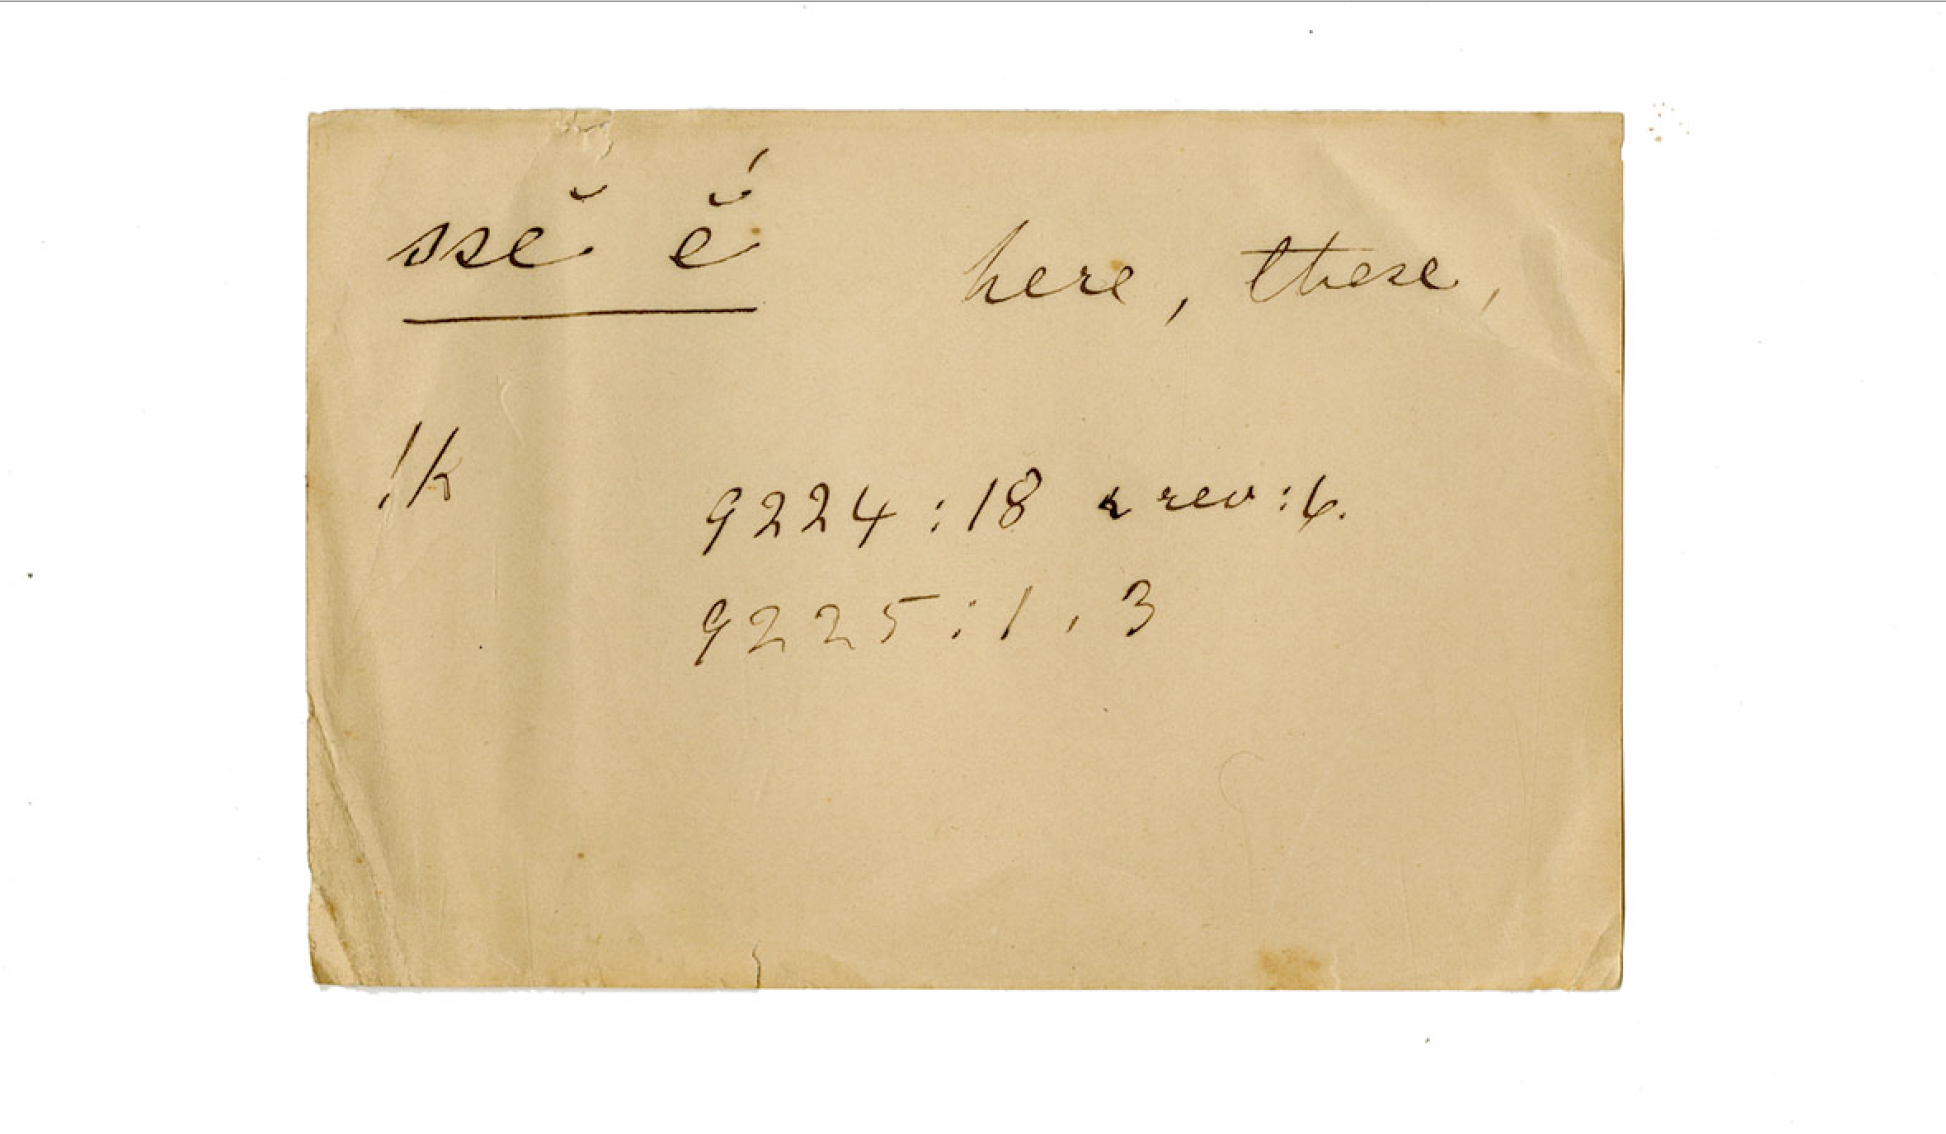 ssĕ ĕ́ here, these,
!k 9224 : 18 & rev : 6.
9225 : 1 , 3